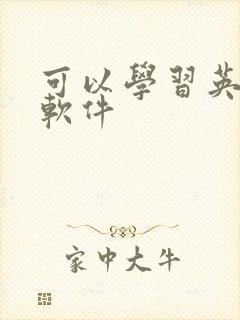 可以學習英
軟件
家中大牛